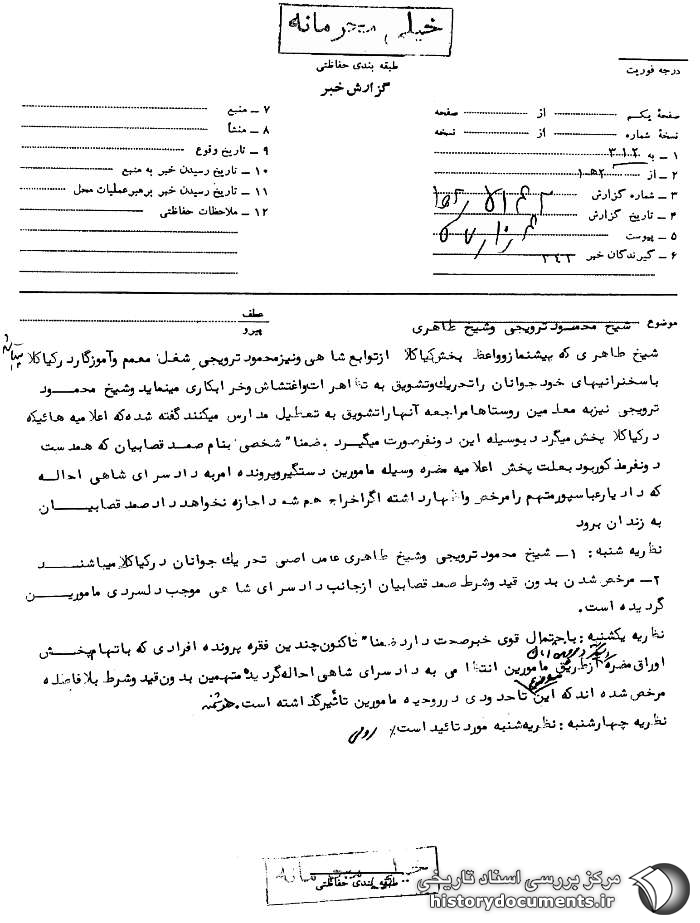 خیلی محرمانه
طبقه بندی حفاظتی
درجه فوریت
گزارش خبر
صفحهٔ یکم از صفحه
نسخهٔ شماره از نسخه
۱ – به ۳۱۲
۲ – از
۳ – شماره گزارش
۴ – تاریخ گزارش
۵ – پیوست
۶ – گیرندگان خبر ۳۴۲
۷ – منبع
۸ – منشأ
۹ – تاریخ وقوع
۱۰ – تاریخ رسیدن خبر به منبع
۱۱ – تاریخ رسیدن خبر برهبر عملیات محل
۱۲ – ملاحظات حفاظتی
موضوع شیخ محمود ترویجی وشیخ طاهری
عطف
پیرو
شیخ طاهری که پیشنماز وواعظ بخش کیاکلا ازتوابع شاهی ونیز محمود ترویجی شغل معمم وآموزگار درکیاکلا
باسخنرانیهای خود جوانان راتحریک وتشویق به تظاهرات واغتشاش وخرابکاری مینماید وشیخ محمود
ترویجی نیز به معلمین روستاها مراجعه آنها راتشویق به تعطیل مدارس میکنند گفته شده که اعلامیه هائیکه
درکیاکلا پخش میگردد بوسیله این دونفر صورت میگیرد . ضمنا" شخصی بنام صمد قصابیان که همدست
دونفر مذکور بود بعلت پخش اعلامیه مضره وسیله مامورین دستگیر وپرونده امر به دادسرای شاهی احاله
که دادیار عباسپور متهم را مرخص واظهار داشته اگر اخراج هم شد اجازه نخواهد داد صمد قصابیان
به زندان برود
نظریه شنبه : ۱– شیخ محمود ترویجی وشیخ طاهری عامل اصلی تحریک جوانان درکیاکلا میباشند
۲– مرخص شدن بدون قید وشرط صمد قصابیان ازجانب دادسرای شاهی موجب دلسردی مامورین
گردیده است .
نظریه یکشنبه : باحتمال قوی خبر صحت دارد ضمنا" تاکنون چندین فقره پرونده افرادی که باتهام پخش
اوراق مضره ازطریق مامورین انتظامی به دادسرای شاهی احاله گردیده متهمین بدون قید وشرط بلافاصله
مرخص شده اند که این تاحدودی درروحیه مامورین تاثیر گذاشته است .
نظریه چهارشنبه : نظریه شنبه مورد تائید است٪
طبقه بندی حفاظتی
مرکز بررسی اسناد تاریخی
historydocuments.ir